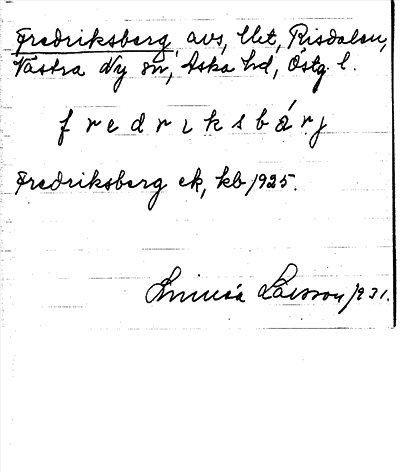 Fredriksberg, avs, Ut, Risdalen,
Västra Ny sn, Aska hd, Östg. l.
fredriksbárj
Fredriksberg ek, kb 1925.
Linnéa Larsson 1931.